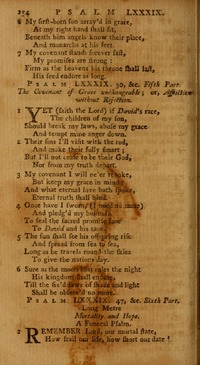 254 PSALM LXXXIX.
6 My first-born son array'd in grace,
At my right hand shall sit,
Beneath him angels know their place,
And monarchs at his feet
7 My covenant stands forever fast,
My promises are strong;
Firm as the heavens his throne shall last,
His seed endure as long.
PSALM LXXXIX. 30, &c. Fifth Part.
The Covenant of Grace unchangeable; or, Affliction
without Rejection.
1 YET (saith the Lord) if David's race,
The children of my son,
Should break my laws, abuse my grace
And tempt mine anger down.
2 Their sins I'll visit with the rod,
And make their folly smart;
But I'll not cease to be their God,
Nor from my truth depart.
3 My covenant I will ne'er revoke,
But keep my grace in mind
And what eternal love hath spoke,
Eternal truth shall bind.
4 Once have I sworn, (I need no more)
And pledg'd my holiness
To seal the sacred promise sure
To David and his race.
5 The sun shall see his offspring rise
And spread from sea to sea,
Long as he travels round the skies
To give the nations day.
6 Sure as the moon that rules the night
His kingdom shall endure,
Till the fix'd laws of shade and light
Shall be observ'd no more.
PSALM LXXXIX. 47, &c. Sixth Part.
Long Metre
Mortality and Hope.
A Funeral Psalm.
1 REMEMBER Lord, our mortal state,
How frail our life, how short our date!